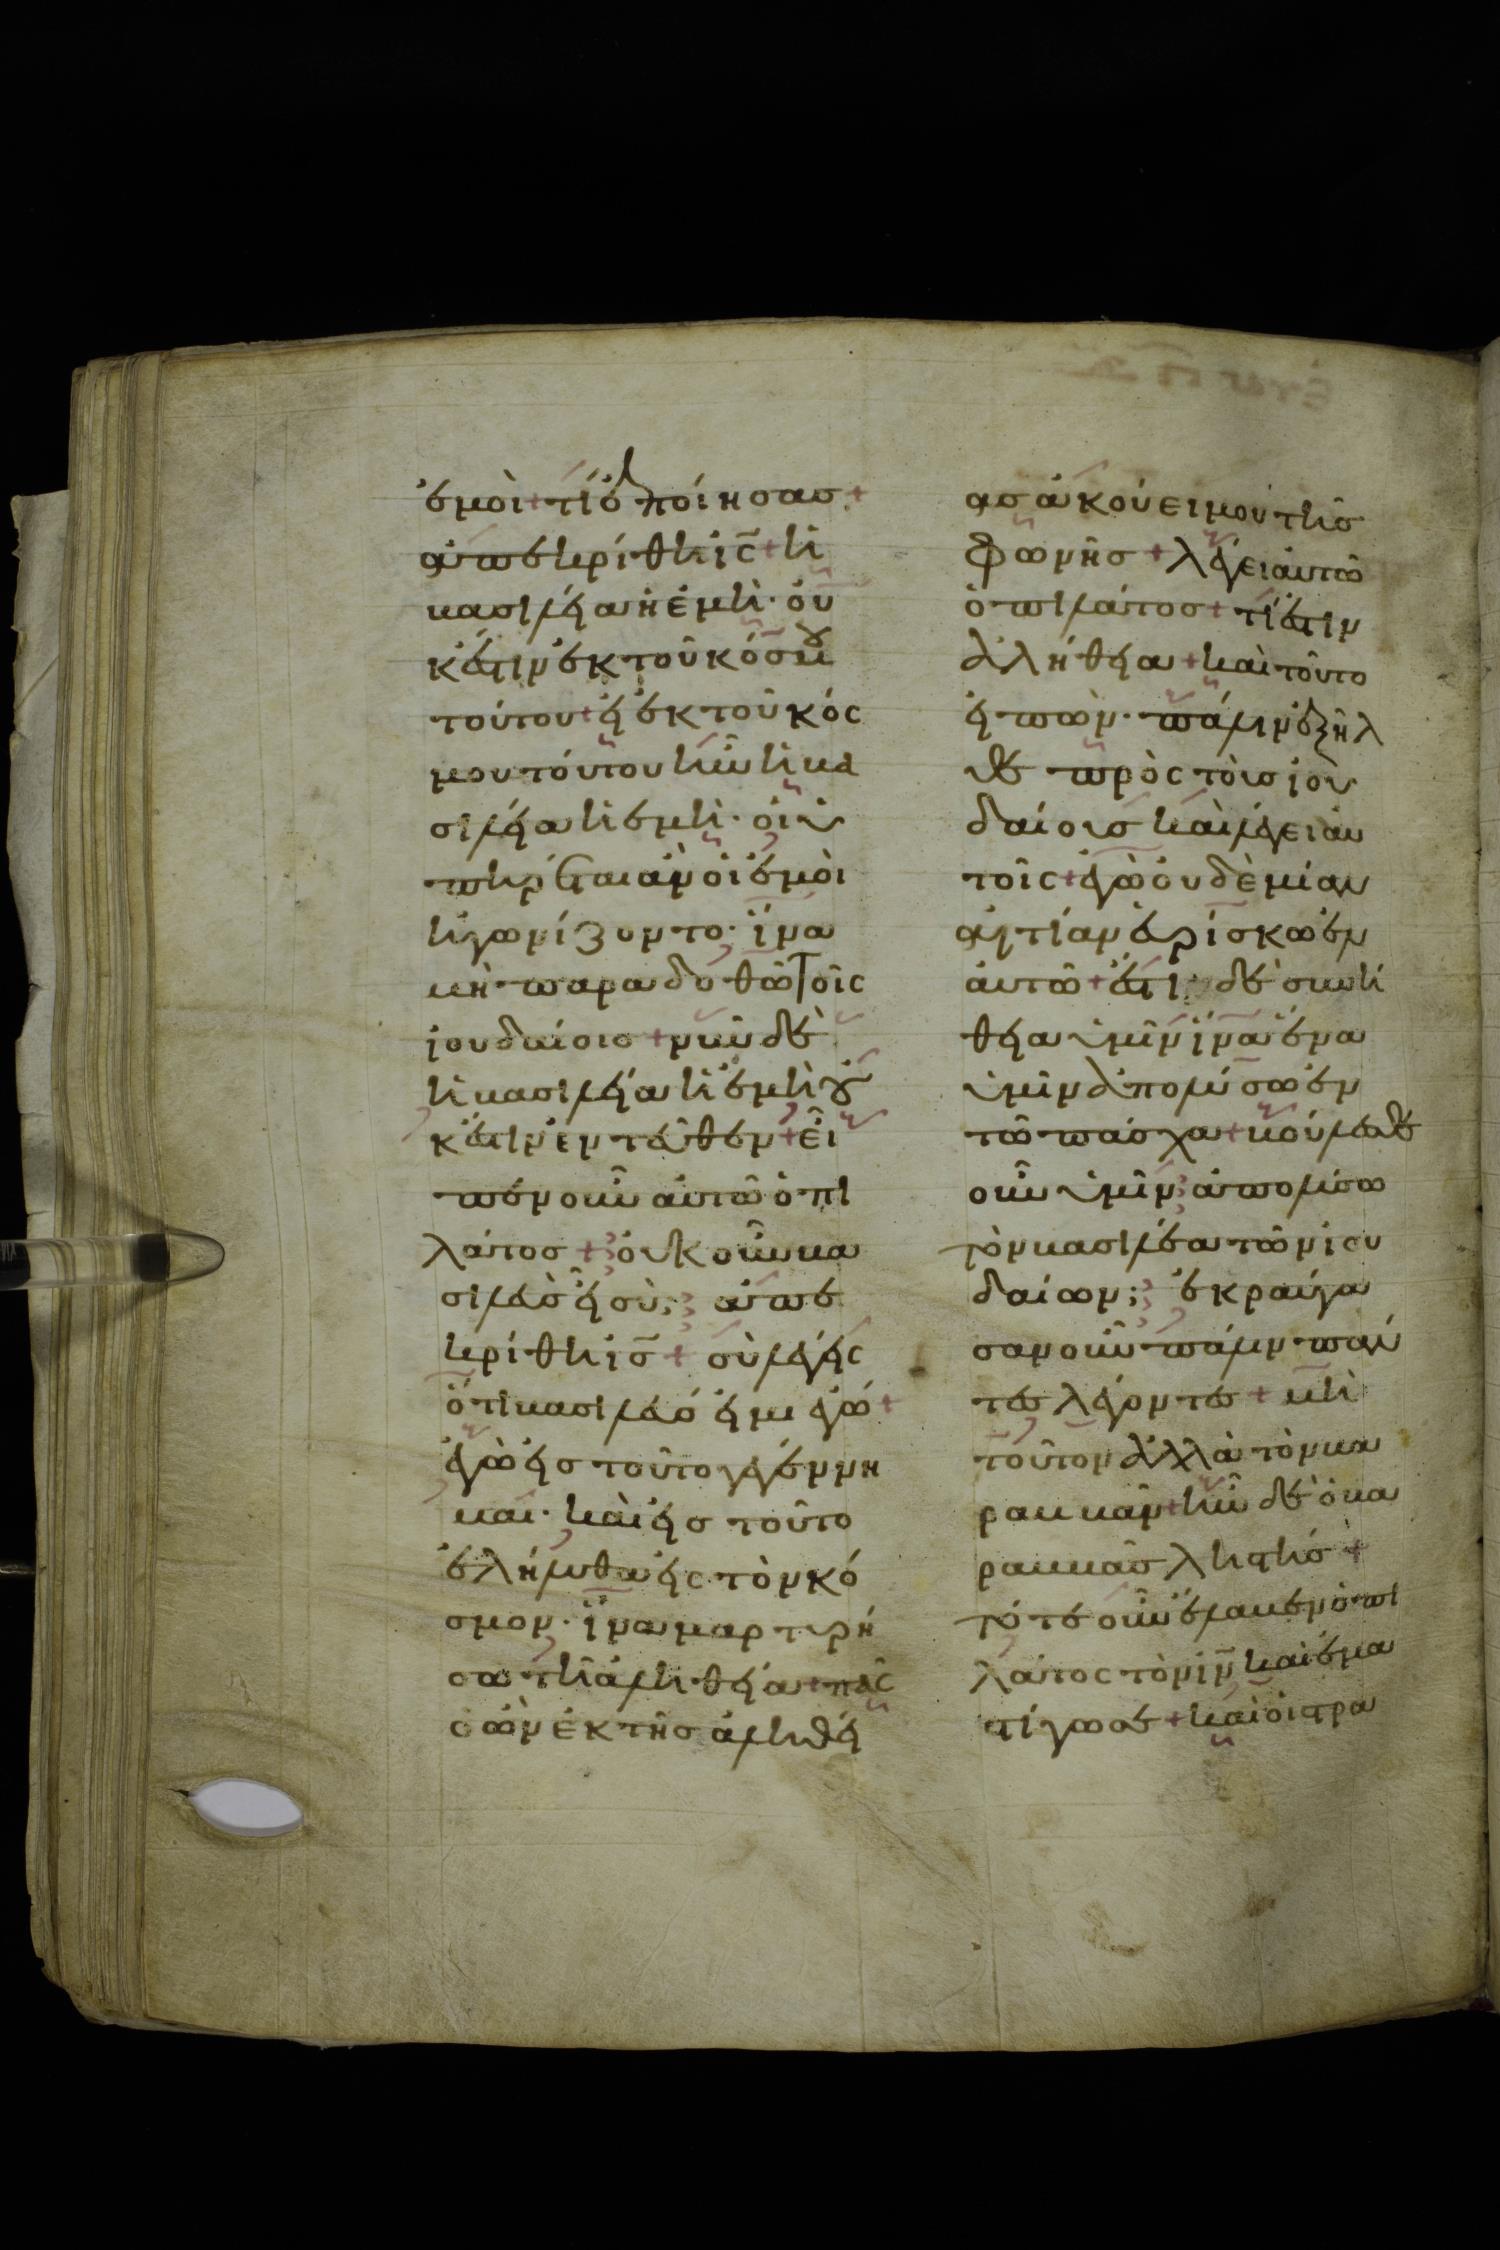 ἐμοί + τί ἐποίησας +
ἀπεκρίθη ἰς̄ + ἡ
βασιλεία ἡ ἐμὴ · οὐ
κ ἔστιν ἐκ τοῦ κόσμου
τούτου + εἰ ἐκ τοῦ κόσ
μου τούτου ἦν ἡ βα
σιλεία ἡ ἐμὴ · οἱ ὑ
πηρέται ἂν οἱ ἐμοὶ
ἠγωνίζοντο · ἵνα
μὴ παραδοθῶ τοῖς
ἰουδαίοις + νῦν δὲ
ἡ βασιλεία ἡ ἐμὴ οὐ
κ ἔστιν ἐντεῦθεν + εἶ
πεν οὖν αὐτῶ ὁ πι
λάτος + οὐκοῦν βα
σιλεὺς εἶ σύ; ἀπε
κρίθη ἰς̄ + σὺ λέγεις
ὅτι βασιλεύς εἰμι ἐγώ +
ἐγὼ εἰς τοῦτο γεγέννη
μαι · καὶ εἰς τοῦτο
ἐλήλυθα εἰς τὸν κό
σμον · ἵνα μαρτυρή
σω τῆ ἀληθεία + πᾶς
ὁ ὢν ἐκ τῆς ἀληθεί
ας ἀκούει μου τῆς
φωνῆς + λέγει αὐτῶ
ὁ πιλάτος + τί ἐστιν
ἀλήθεια + καὶ τοῦτο
εἰπὼν · πάλιν ἐξῆλ
θε πρὸς τοὺς ἰου
δαίους καὶ λέγει αὐ
τοῖς + ἐγὼ οὐδὲ μίαν
αἰτίαν εὑρίσκω ἐν
αὐτῶ + ἔστι δὲ συνή
θεια ὑμῖν ἵνα ἕνα
ὑμῖν ἀπολύσω ἐν
τῶ πάσχα + βούλεσθε
οὖν ὑμῖν ἀπολύσω
τὸν βασιλέα τῶν ἰου
δαίων; ἐκραύγα
σαν οὖν πάλιν πάν
τες λέγοντες + μὴ
τοῦτον ἀλλὰ τὸν βα
ραββᾶν + ἦν δὲ ὁ βα
ραββᾶς ληστής +
τότε οὖν ἔλαβεν ὁ πι
λάτος τὸν ἰν̄ καὶ ἐμα
στίγωσε + καὶ οἱ στρα